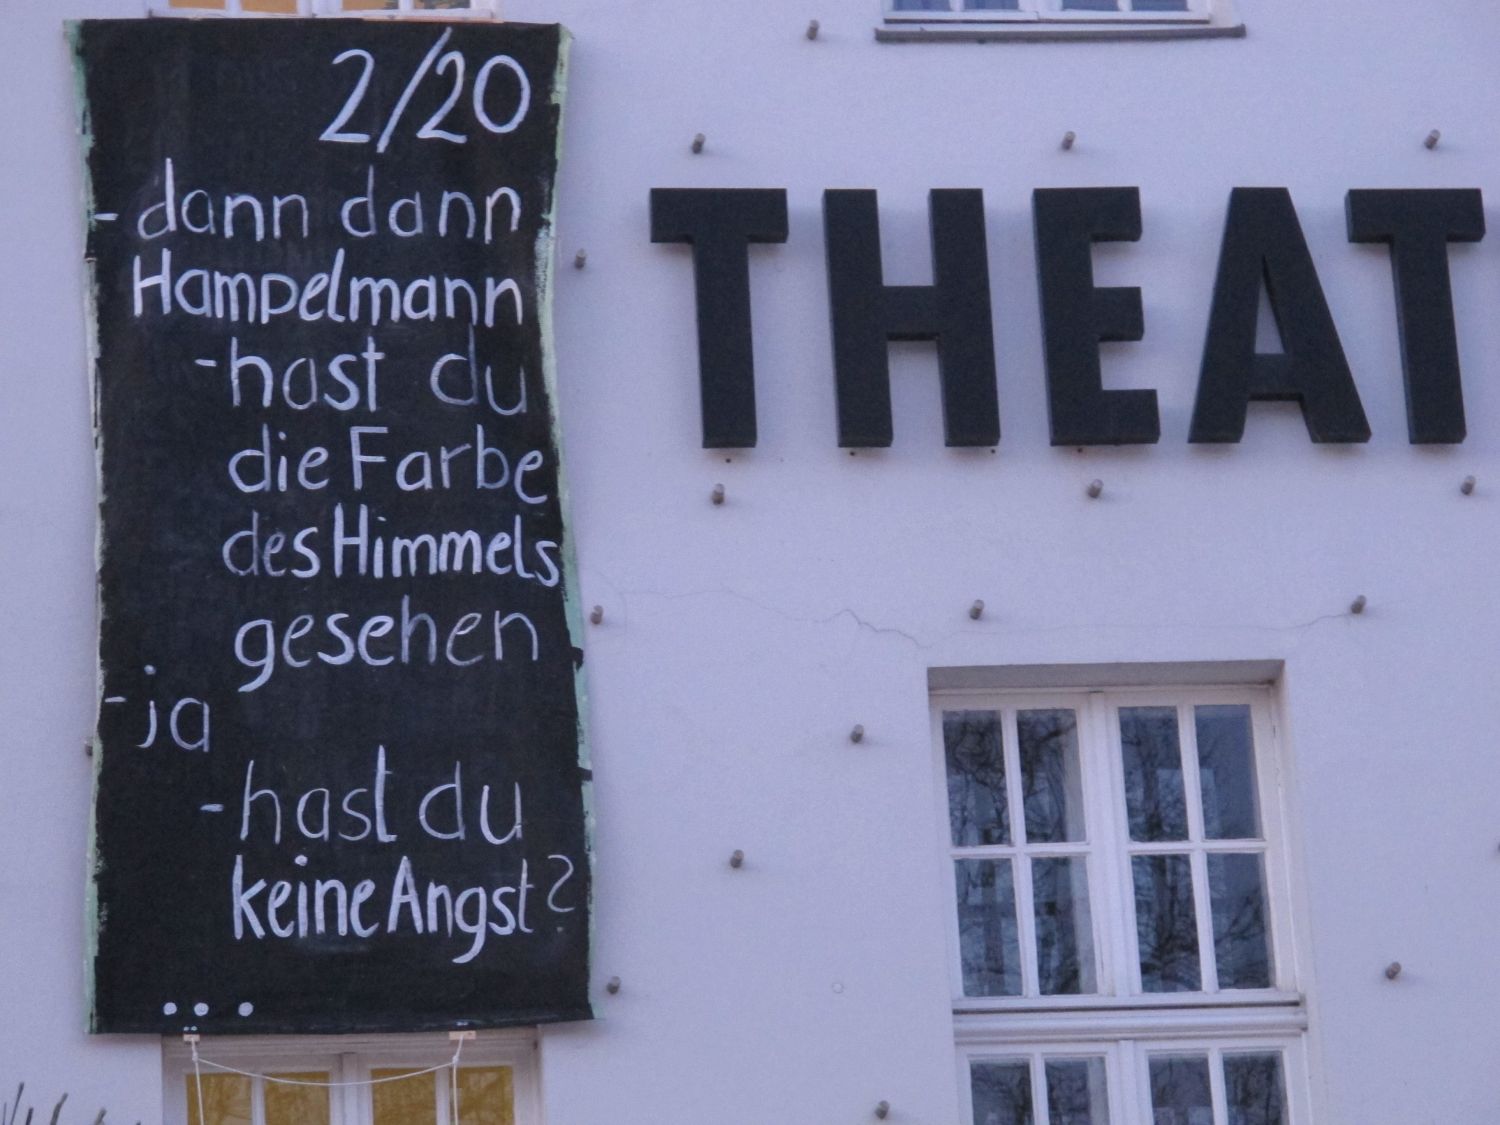 2/20
- dann dann
Hampelmann
- hast du
die Farbe
des Himmels
gesehen
- ja
- hast du
keine Angst?
...
THEAT